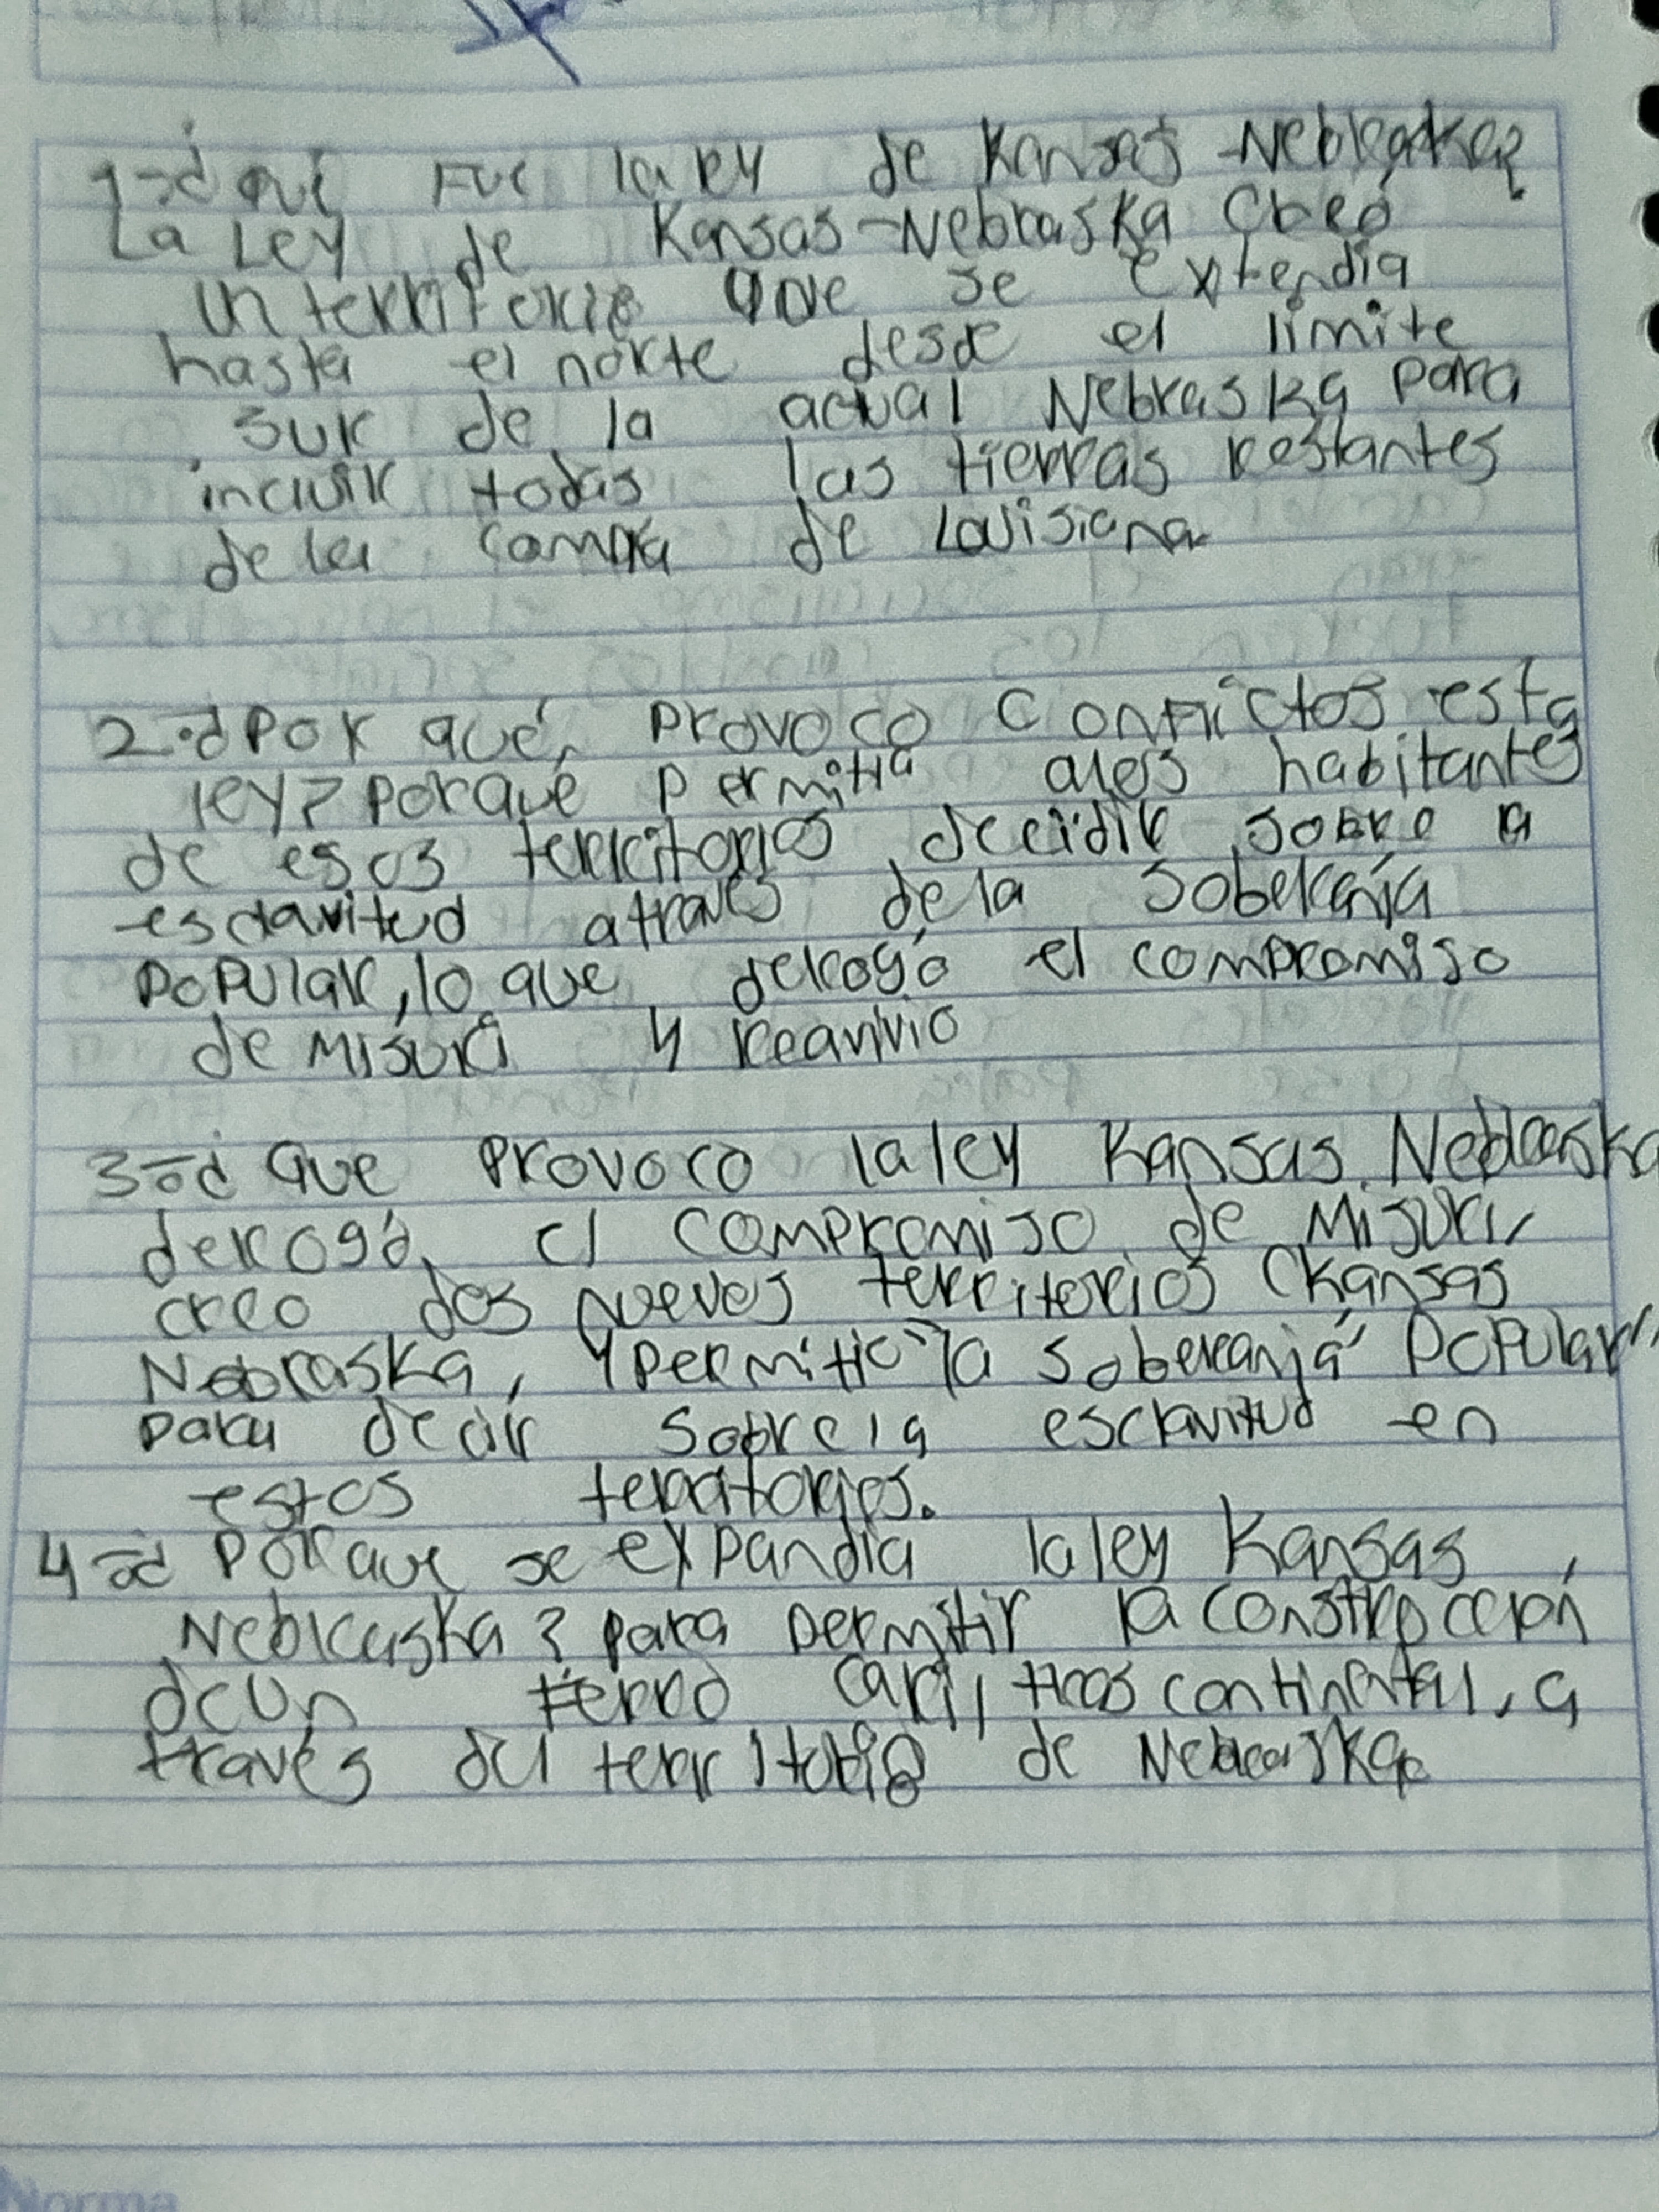 1-¿qué Fue la ley de Kansas-Nebraska?
La Ley de Kansas-Nebraska Creó
un territorio que se extendia
hasta el norte desde el limite
sur de la actual Nebraska para
incluir todas las tierras restantes
de la compra de Louisiana
2.¿Por qué provoco conflictos esta
ley? Porque permitia alos habitantes
de esos territorios decidir sobre la
esclavitud a través de la soberanía
Popular, lo que derogó el compromiso
de Misuri y reavivio
3-¿Que Provoco la ley Kansas Nebraska
derogó el compromiso de Misuri,
creo dos nuevos territorios (Kansas
Nebraska, y permitio "la soberanía Popular",
para decir sobre la esclavitud en
estos territorios.
4-¿Por que se expandia la ley Kansas,
Nebraska? para permitir la construccion
de un ferro caril, trascontinental, a
través del territorio de Nebraska
Norma